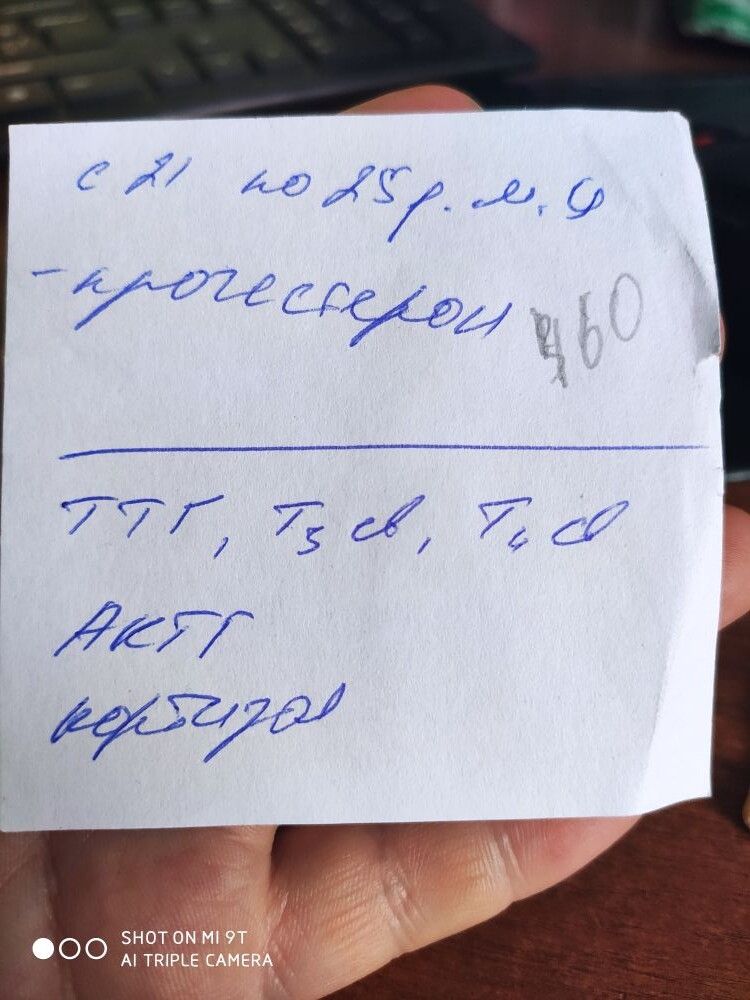 с 21 по 25 д. м. ц
- прогестерон 460
ТТГ, Т3 св, Т4 св
АКТГ
кортизол
SHOT ON MI 9T
AI TRIPLE CAMERA